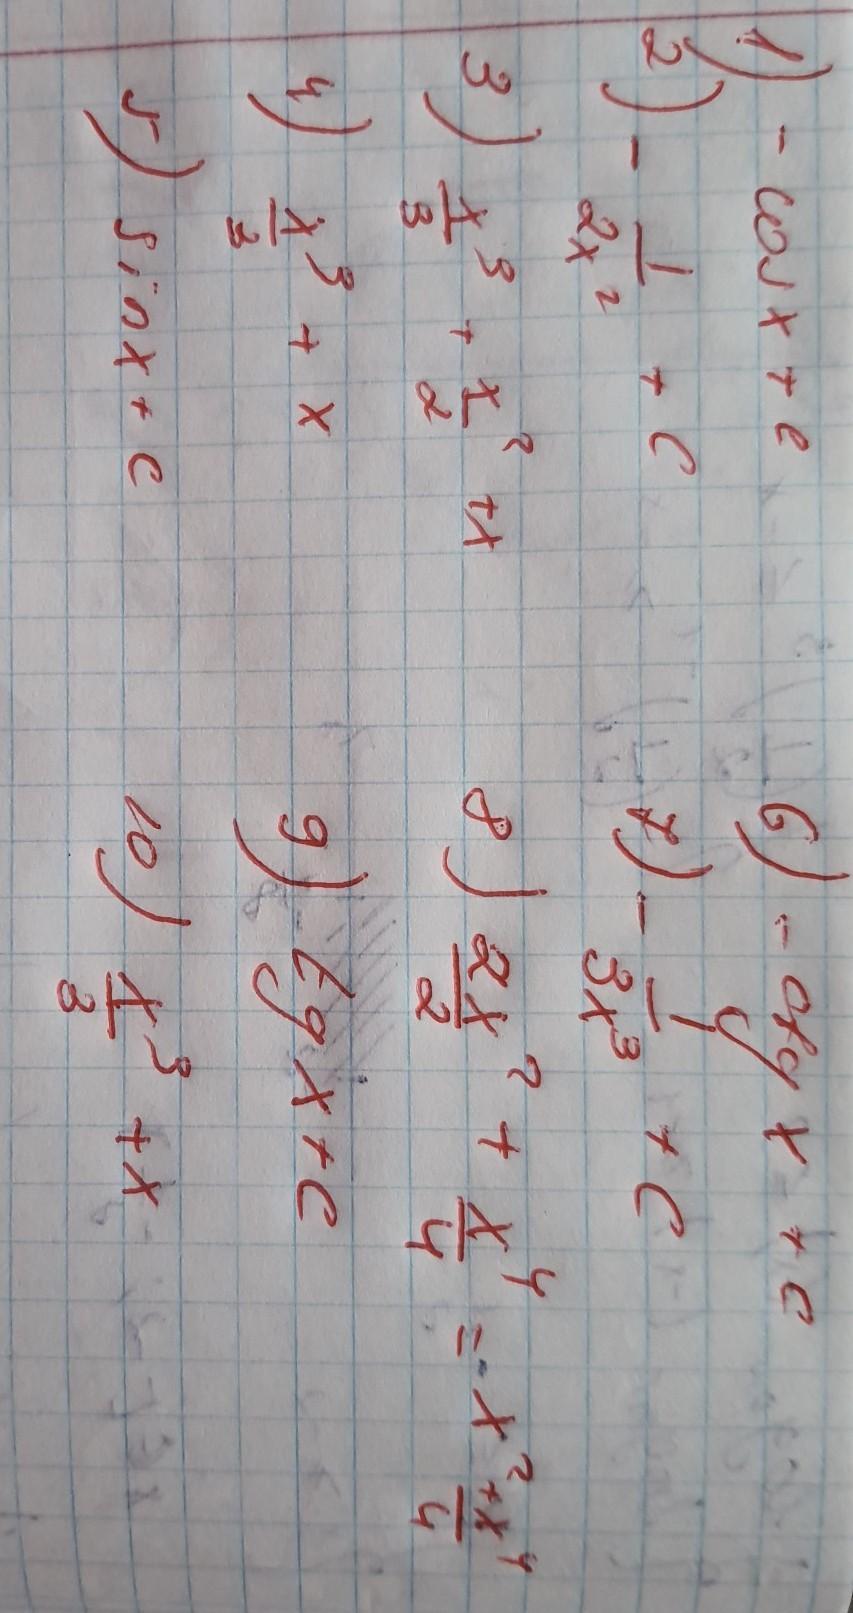 1) - cos x + c
2) - 1/2x² + c
3) x³/3 + x²/2 + x
4) x³/3 + x
5) sin x + c
6) - ctg x + c
7) - 1/3x³ + c
8) 2x²/2 + x⁴/4 = x² + x⁴/4
9) tg x + c
10) x³/3 + x